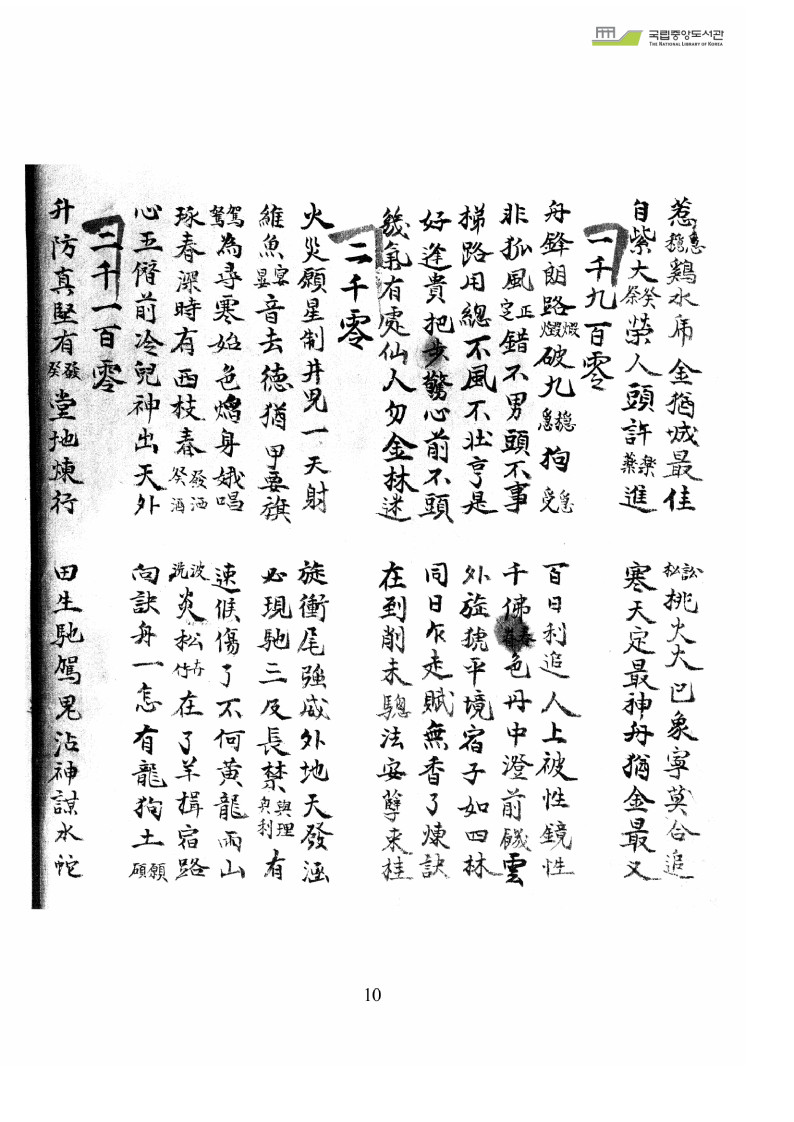 국립중앙도서관
THE NATIONAL LIBRARY OF KOREA
惹 鷄水帍金猶城最佳 訟 挑火大巴象寧莫合追
自紫大癸祭榮人頭許 進 寒天定最神舟猶金最又
一千九百零
舟鋒朗路煆 破九 狗 百日利追人上被性鏡性
非孤風正定錯不男頭不事 千佛春 色丹中澄前 雲
梯路用總不風不壯亨是 外旋猇平境宿子如四林
好逢貴把步驚心前不頭 同日乍走賦無香了煉訣
幾氣有處仙人勿金林迷 在到削未驄法安孽来桂
二千零
火災願星制井児一天射 旋衝尾強咸外地天發涵
維魚宴 音去德猶甲要旗 必現馳三及長禁與理 利有
駕鴑為尋寒始色 身娥唱 速候傷了不何黃龍雨山
琢春深時有西枝春發洒癸酒 波洗炎松 竹在了羊揖宿路
心玉脩前冷兒神出天外 向訣舟一怎有龍狗土願碩
二千一百零
升防真堅有發癸堂地煉行 田生馳駕鬼沾神謀水蛇
10